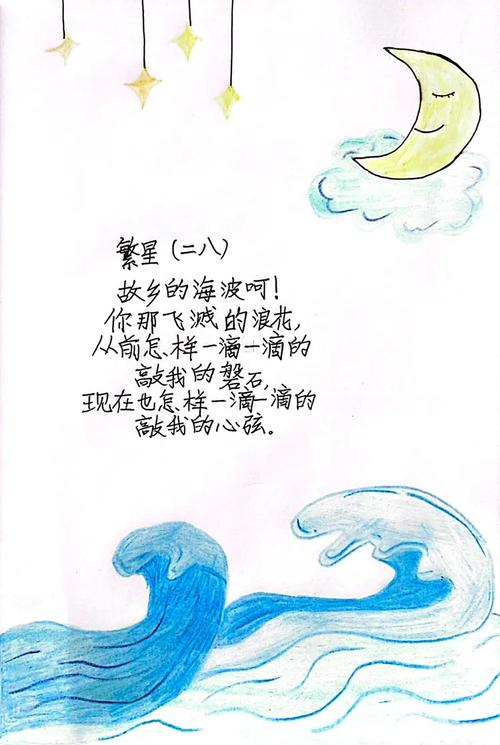 繁星(二八)
故乡的海波呵!
你那飞溅的浪花,
从前怎样一滴一滴的
敲我的磐石,
现在也怎样一滴一滴的
敲我的心弦。